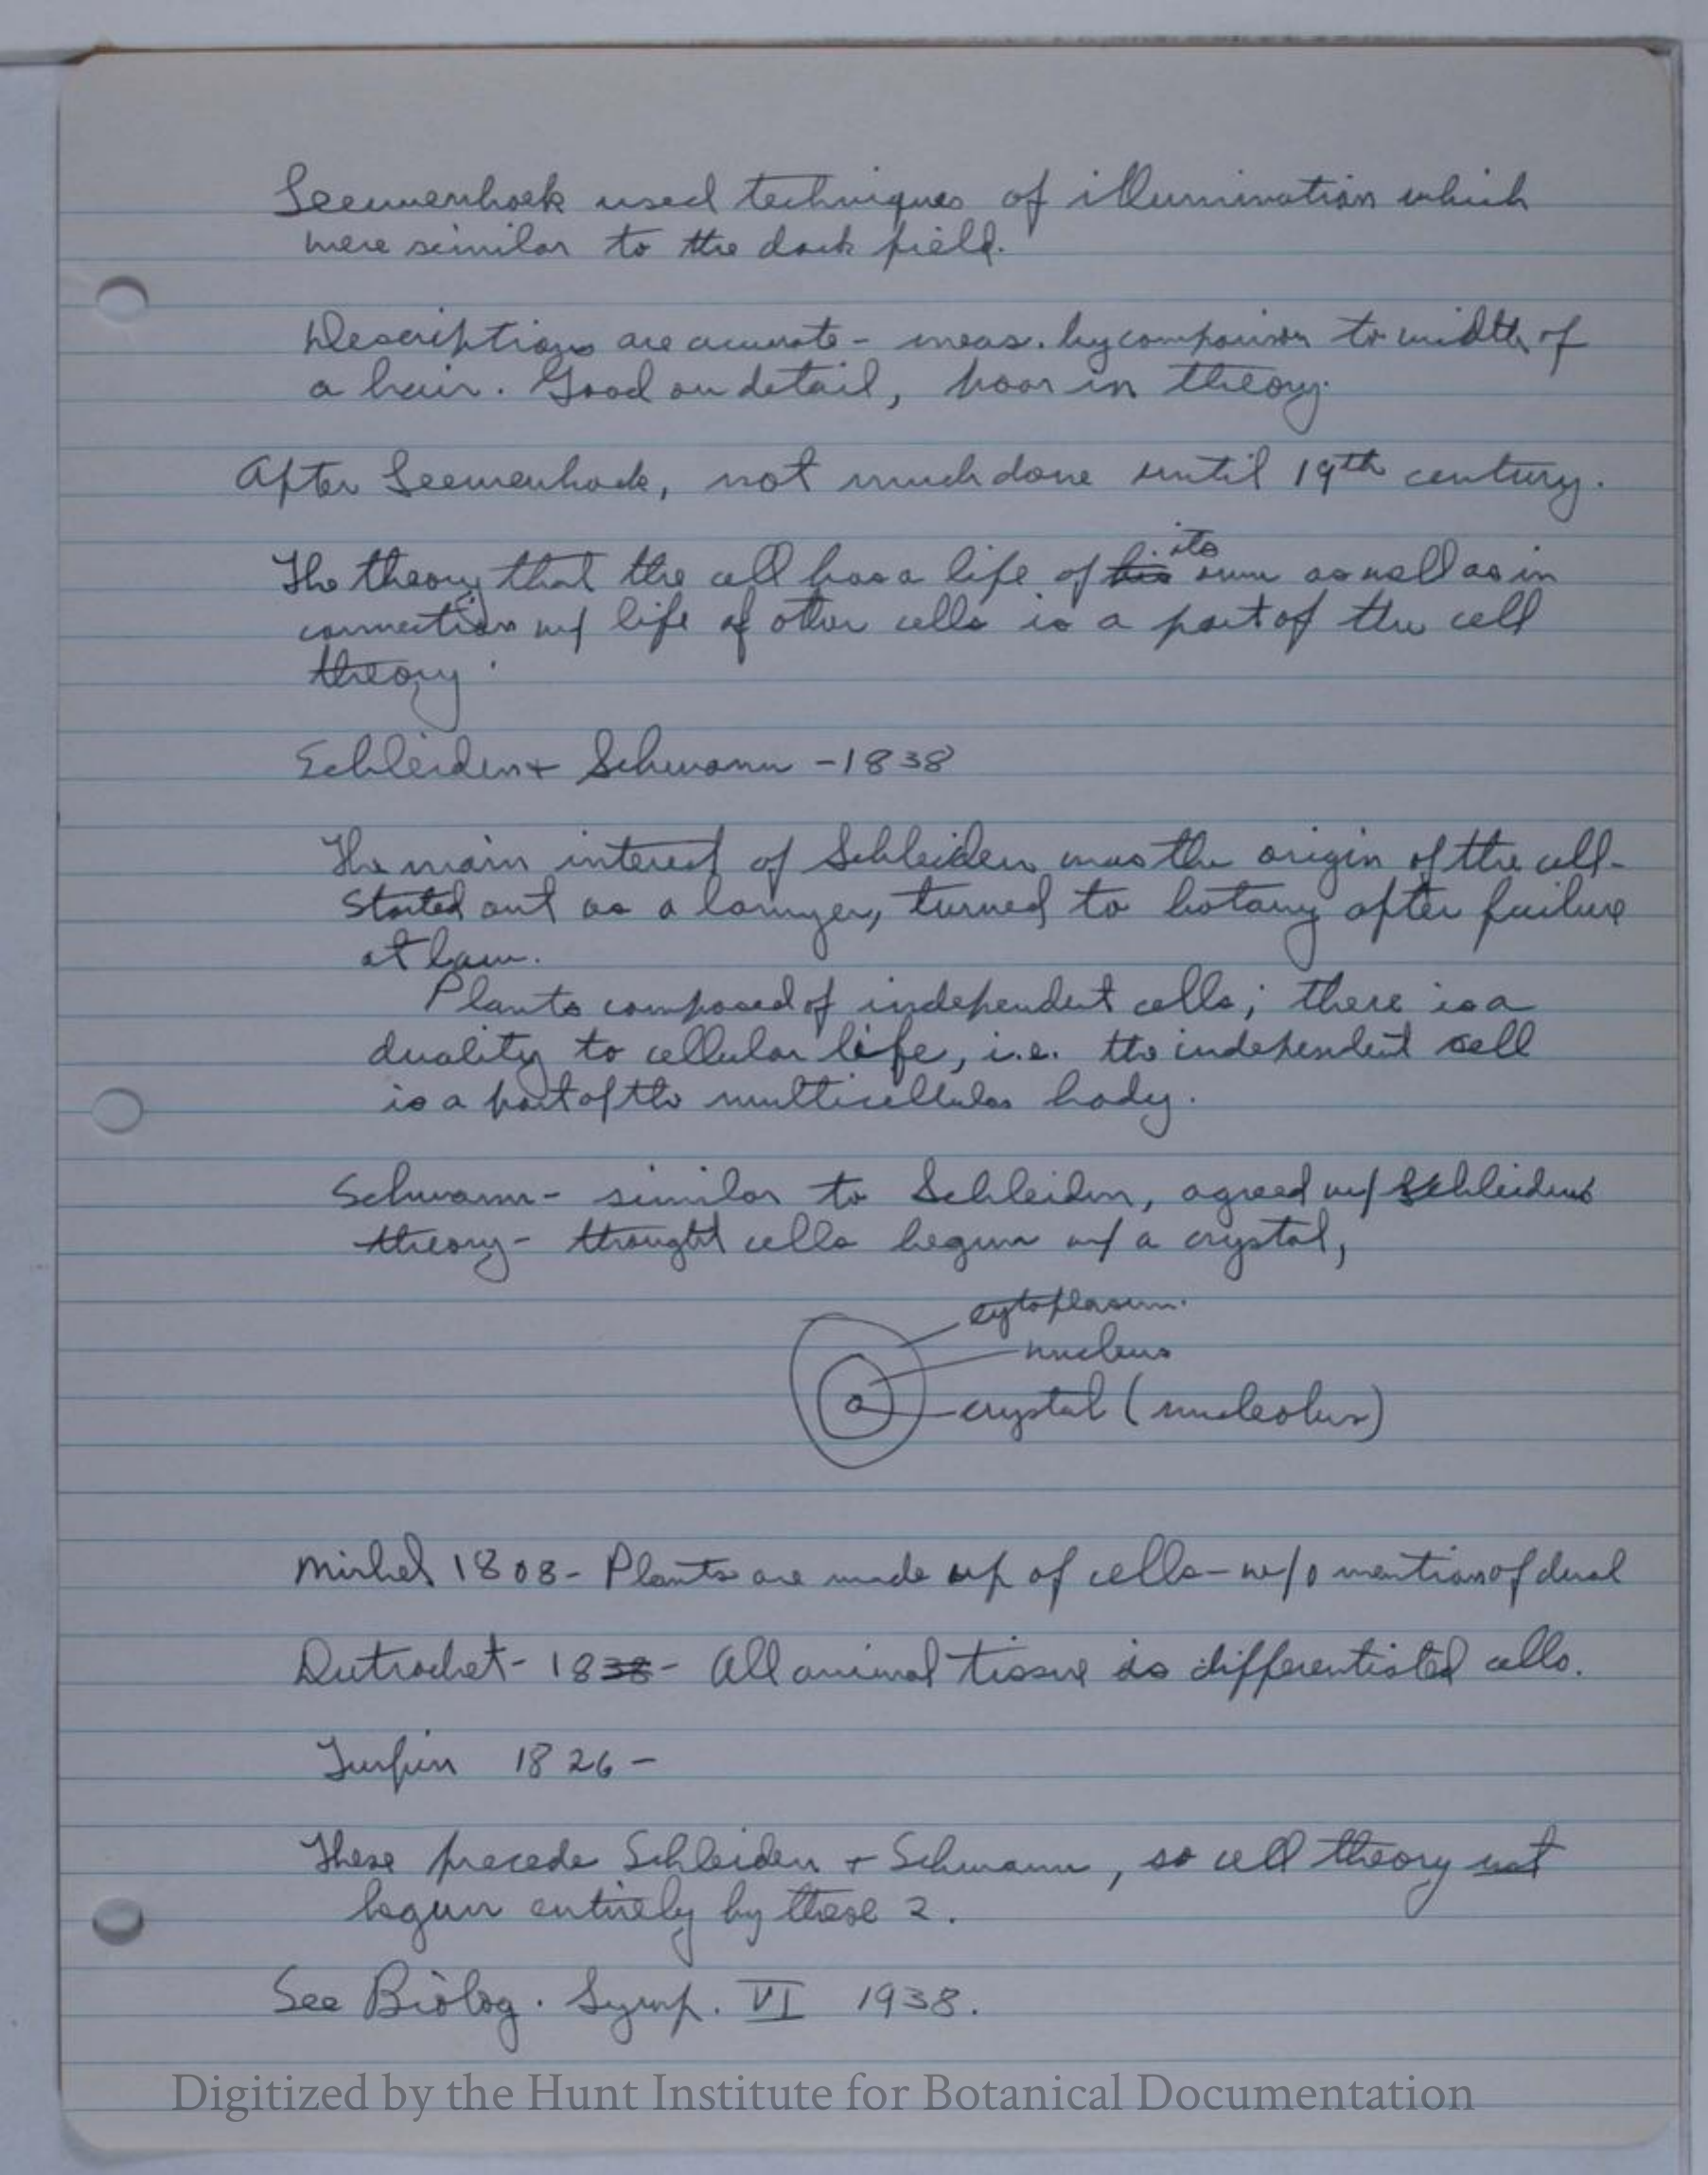 Leeuwenhoek used techniques of illumination which
were similar to the dark field.
Descriptions are accurate - meas. by comparison to width of
a hair. Good on detail, poor in theory.
After Leeuwenhoek, not much done until 19th century.
The theory that the cell has a life of ~~his~~ its own as well as in
connection w/ life of other cells is a part of the cell
theory.
Schleiden + Schwann - 1838
The main interest of Schleiden was the origin of the cell-
Started out as a lawyer, turned to botany after failure
at law.
Plants composed of independent cells; there is a
duality to cellular life, i.e. the independent cell
is a part of the multicellular body.
Schwann - similar to Schleiden, agreed w/ Schleidens
theory - thought cells begun w/ a crystal,
cytoplasm.
nucleus
crystal (nucleolus)
Mirbel 1808 - Plants are made up of cells - w/o mention of dual
Dutrochet - 18~~38~~ - All animal tissue is differentiated cells.
Turpin 1826 -
These precede Schleiden + Schwann, so cell theory not
begun entirely by these 2.
See Biolog. Symp. VI 1938.
Digitized by the Hunt Institute for Botanical Documentation